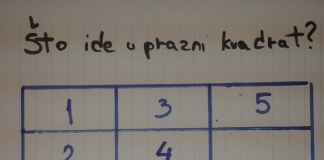 Što ide u prazni kvadrat?
1 3 5
2 4